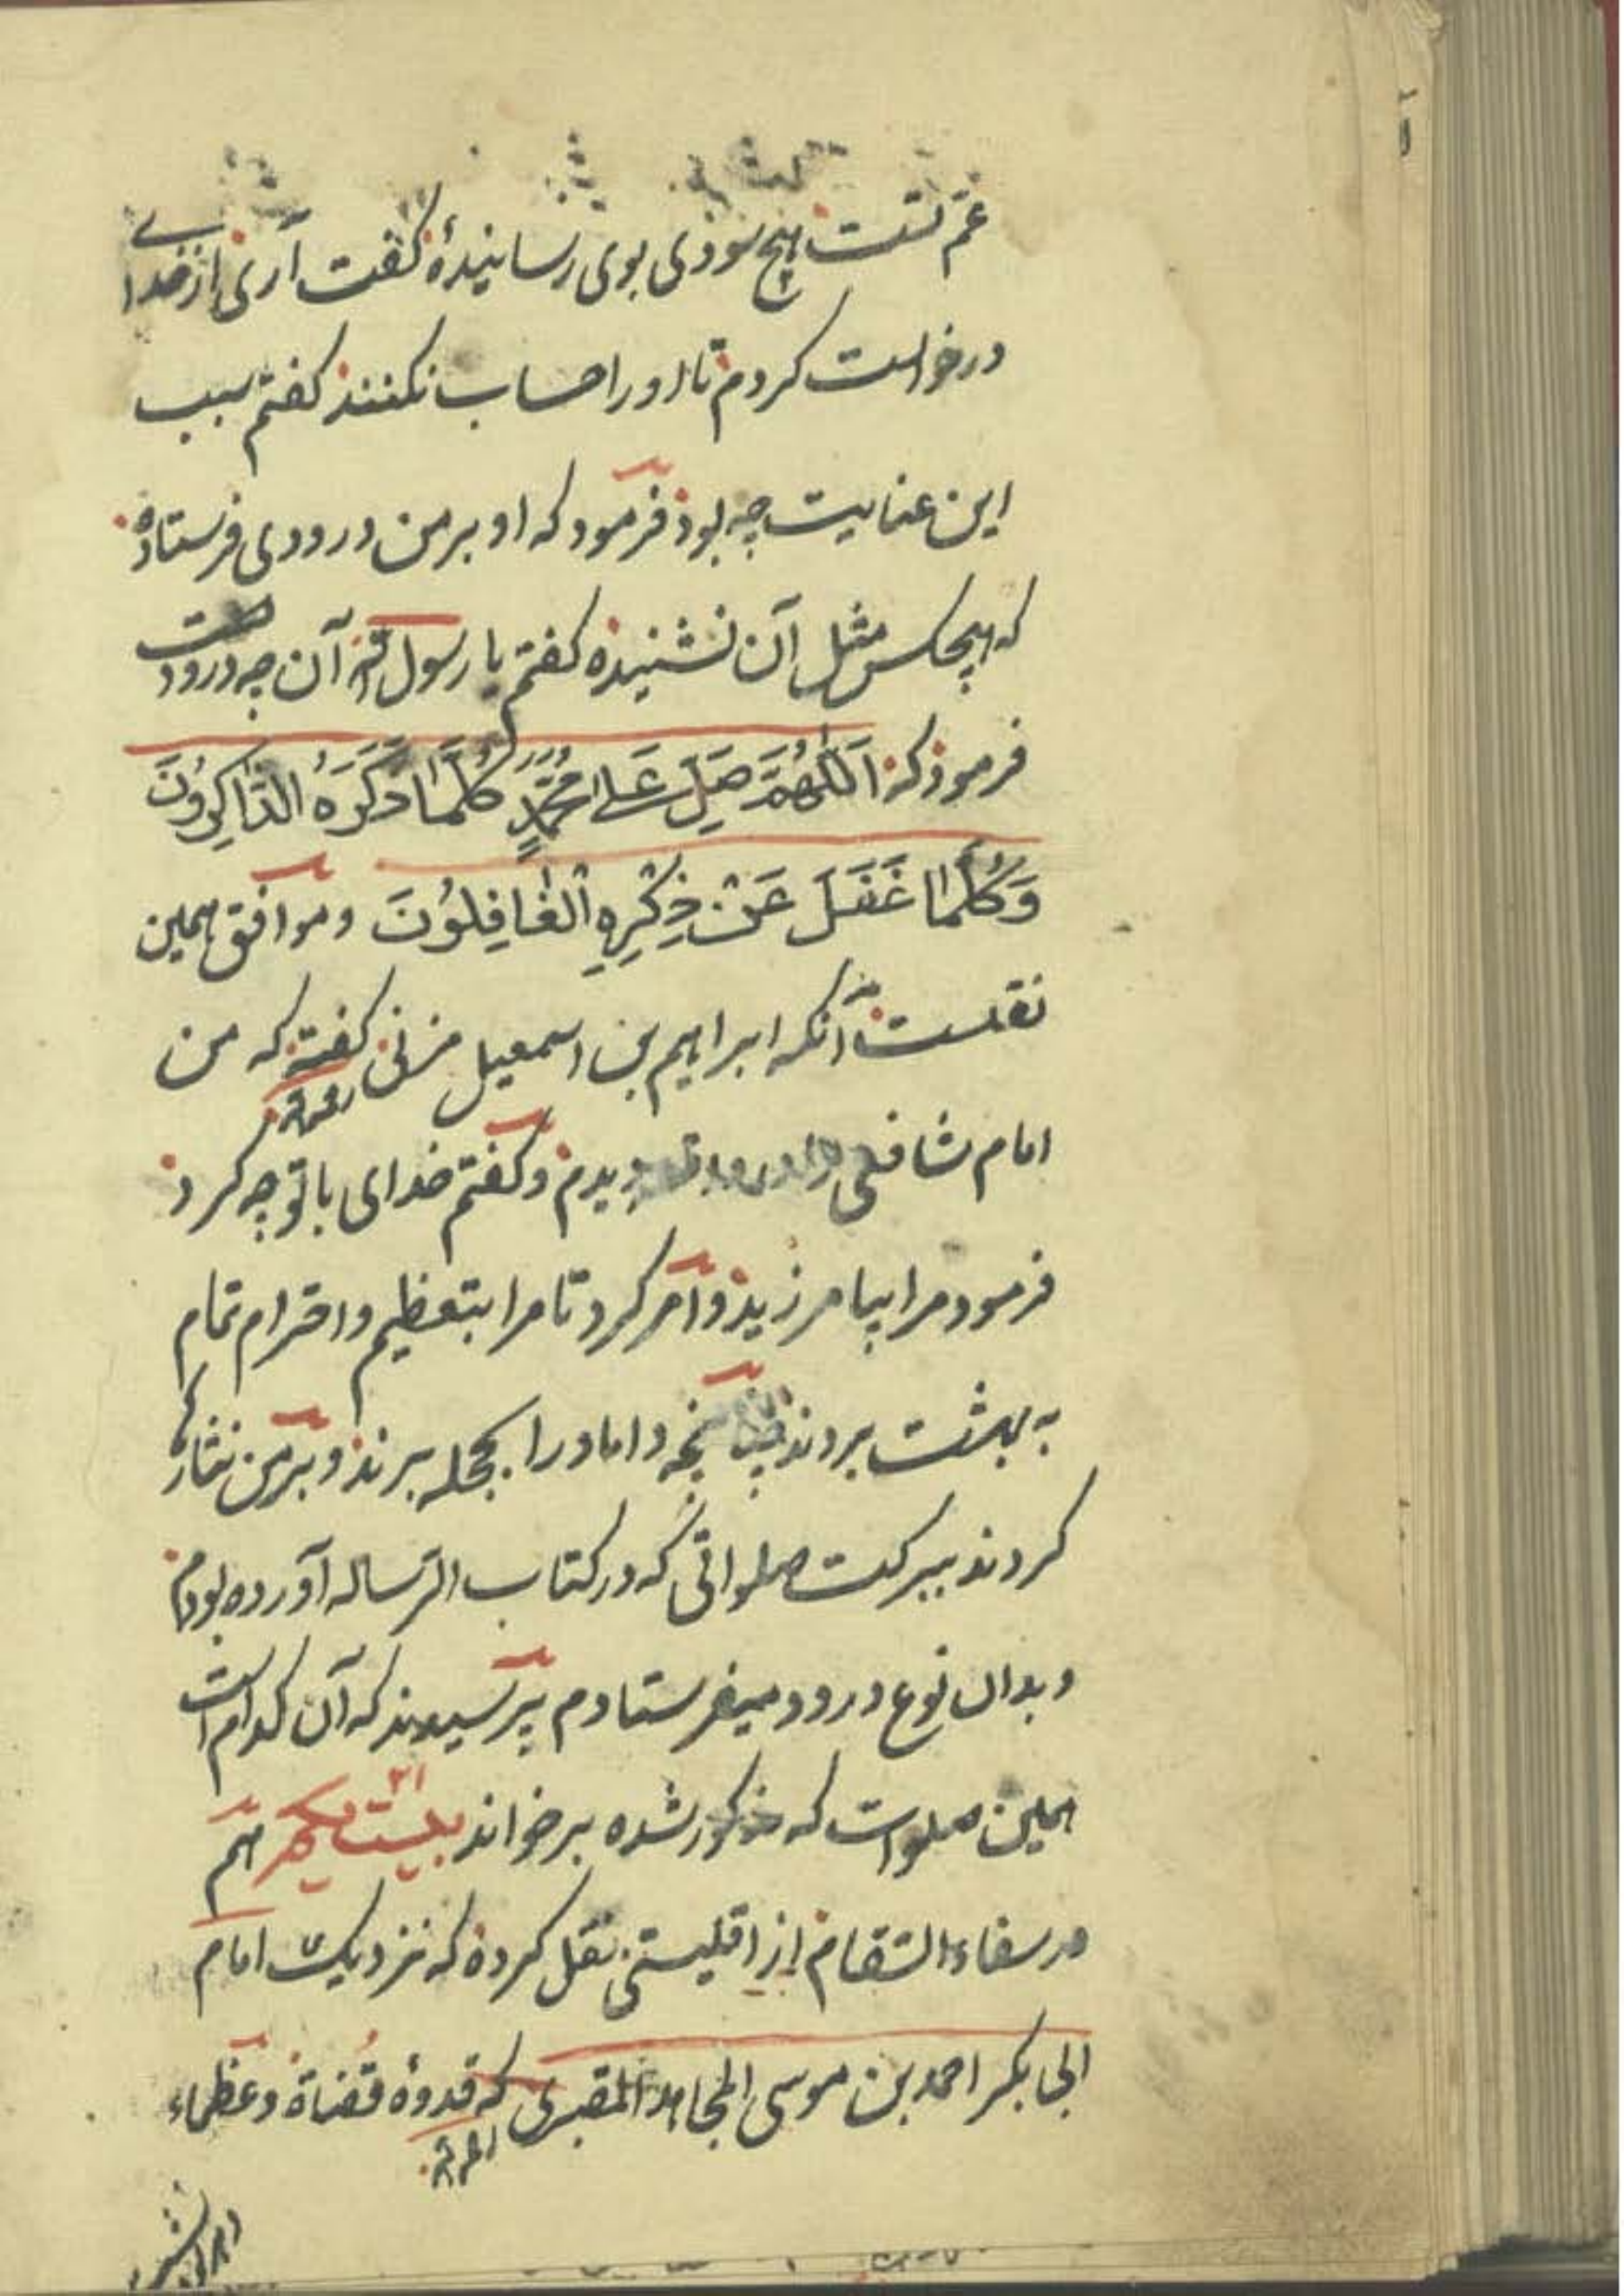 عم تست هیچ سودی بوی رسانیدهٔ گفت آری از خدای
درخواست کردم تا اورا حساب نکنند گفتم سبب
این عنایت چه بود فرمود که او بر من درودی فرستاده
که هیچکس مثل آن نشنیده گفتم یا رسول الله آن چه درودست
فرمود که اَللّٰهُمَّ صَلِّ عَلٰی مُحَمَّدٍ کُلَّمَا ذَکَرَهُ الذَّاکِرُونَ
وَکُلَّمَا غَفَلَ عَنْ ذِکْرِهِ الْغَافِلُونَ و موافق همین
نقلست آنکه ابراهیم بن اسمعیل مزنی گفته که من
امام شافعی را رحمه الله دیدم و گفتم خدای با تو چه کرد
فرمود مرا بیامرزید و امر کرد تا مرا بتعظیم و احترام تمام
به بهشت بردند چنانچه داماد را بحجله برند و بر من نثارها
کردند ببرکت صلواتی که در کتاب الرساله آورده بودم
و بدان نوع درود میفرستادم پرسیدند که آن کدام است
همین صلوات که مذکور شده برخواند بیست یکم ۲۱ هم
در شفاءالسقام از اقلیسی نقل کرده که نزدیک امام
ابی بکر احمد بن موسی المجاهد المقری که قدوهٔ قضاة و عظماء